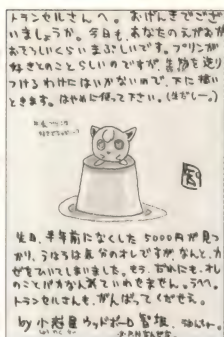 トランセルさんへ。おげんきでござ
いましょうか。今日も、あなたのえがおが
おそろしいくらいまぶしいです。プリンが
好きとのことらしいのですが、生物を送り
つけるわけにはいかないので、下に描い
ときます。はやめに使って下さい。(生だし〜。)
先日、半年前になくした5000円が見つ
かり、うはうは気分のオレですが、なんと、カ
ゼをひいてしまいました。もう、だれにも、オレ
のことバカなんていわせません。うへへ。
トランセルさんも、がんばってくだせえ。
by 小岩屋ウッドボード智坂